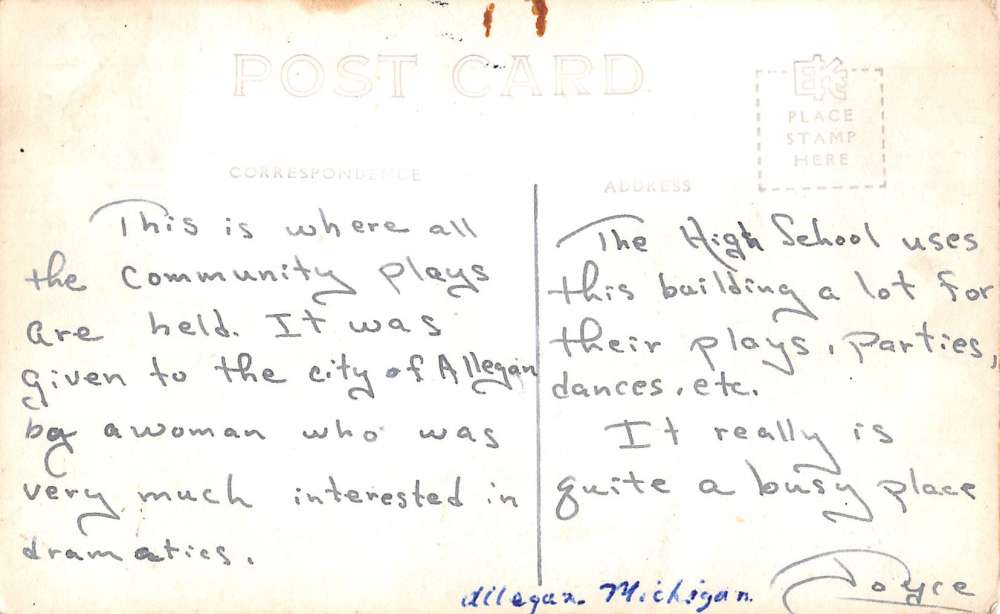 POST CARD
EK
PLACE
STAMP
HERE
CORRESPONDENCE
ADDRESS
This is where all
the Community plays
are held. It was
given to the city of Allegan
by a woman who was
very much interested in
dramatics.
The High School uses
this building a lot for
their plays, parties,
dances, etc.
It really is
quite a busy place
Joyce
Allegan Michigan